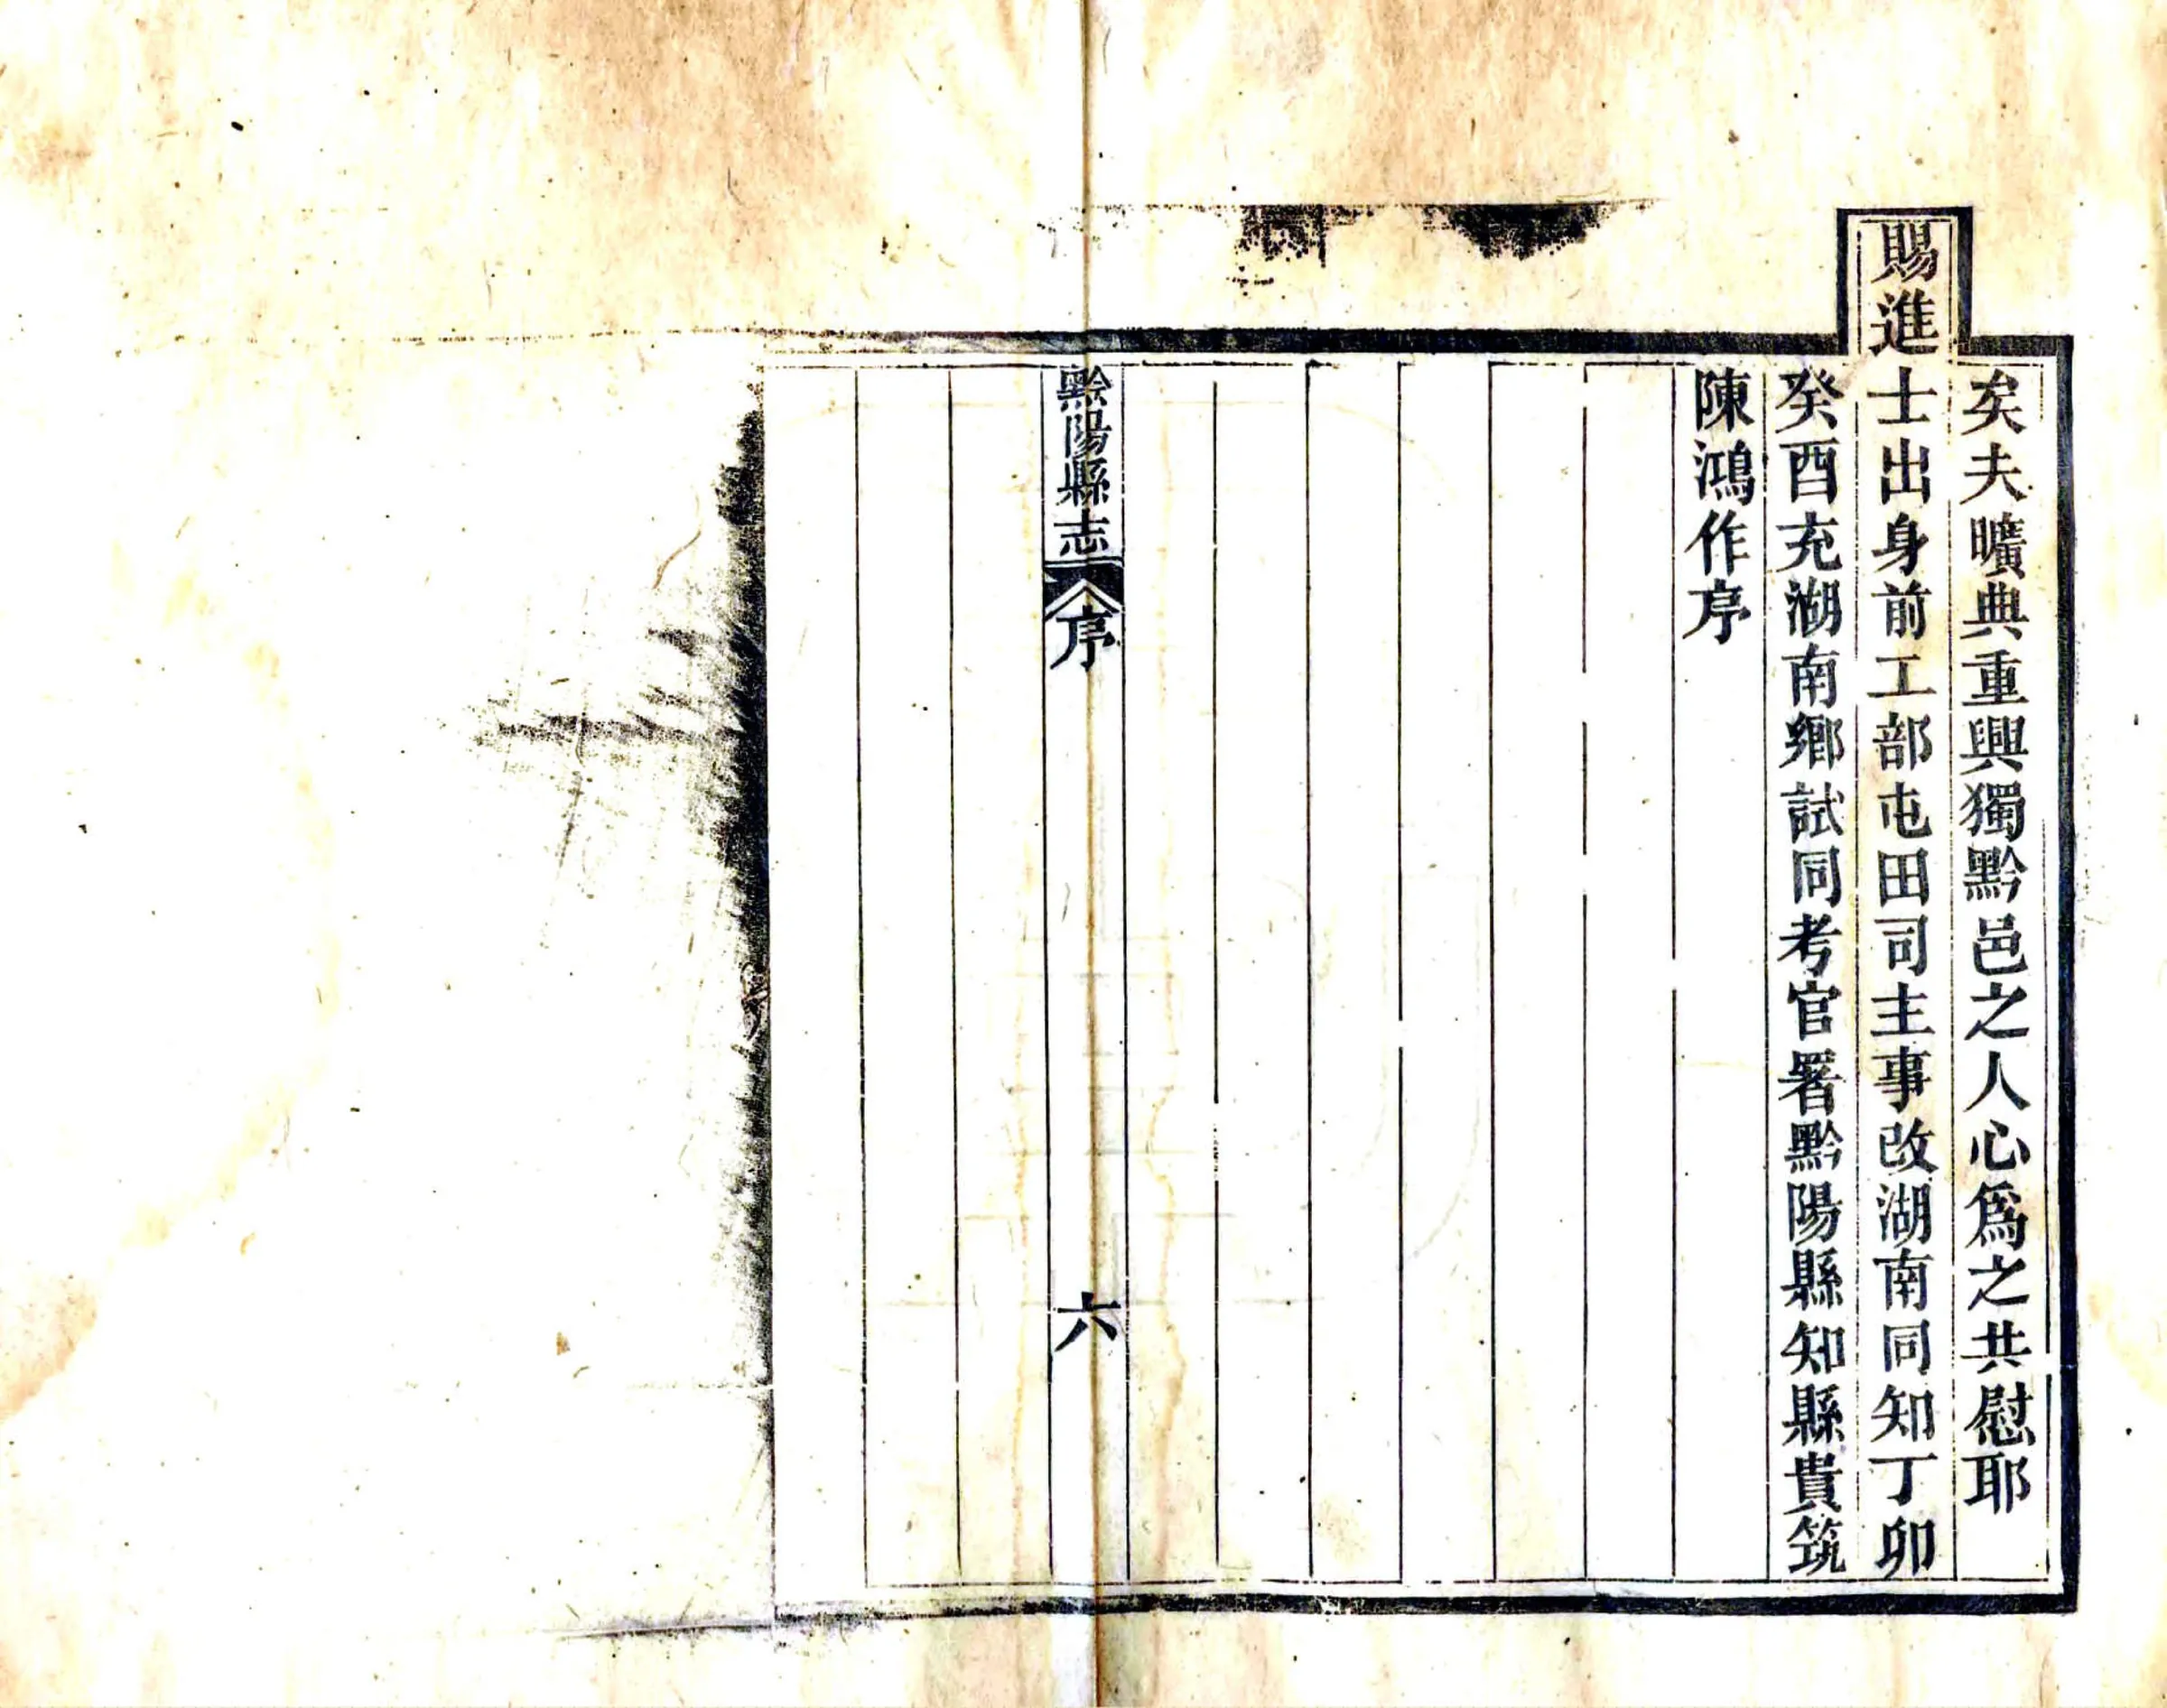 矣夫曠典重興獨黔邑之人心爲之共慰耶
賜進士出身前工部屯田司主事改湖南同知丁卯
癸酉充湖南鄉試同考官署黔陽縣知縣貴筑
陳鴻作序
黔陽縣志
序
六